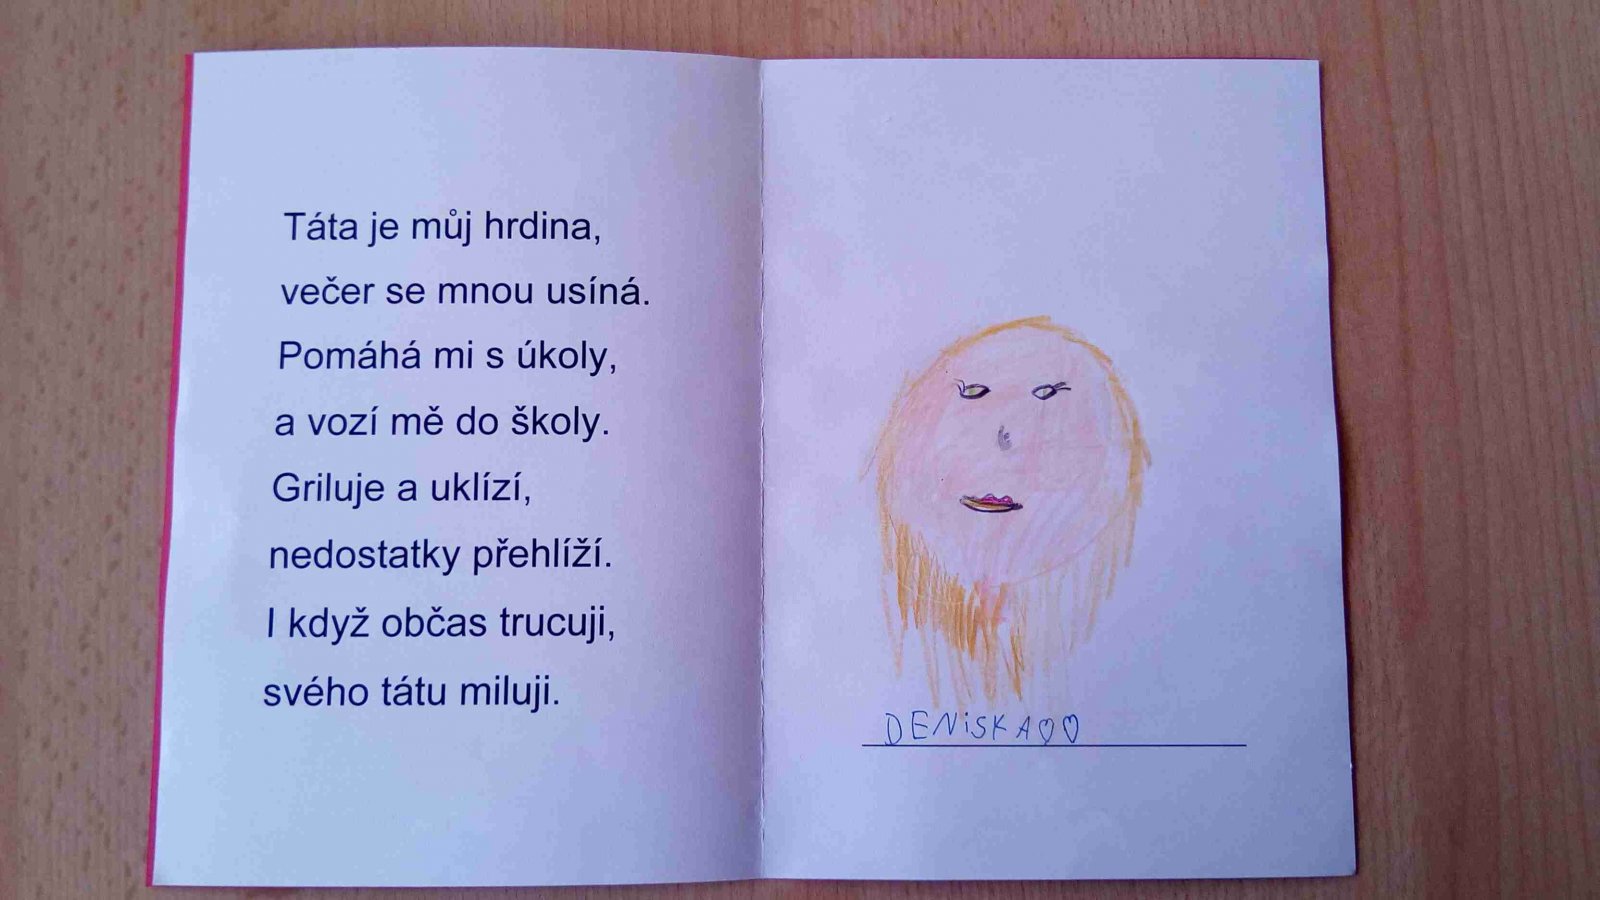 Táta je můj hrdina,
večer se mnou usíná.
Pomáhá mi s úkoly,
a vozí mě do školy.
Griluje a uklízí,
nedostatky přehlíží.
I když občas trucuji,
svého tátu miluji.
DENiSKA♡♡